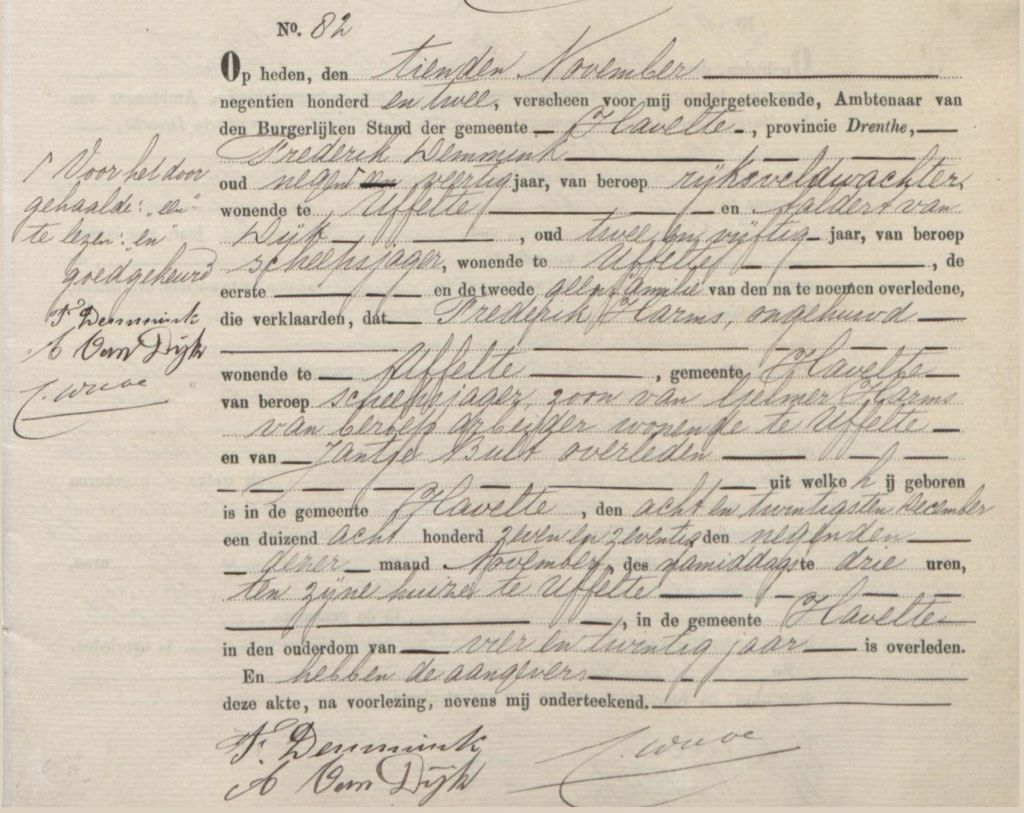 No. 82
Op heden, den tienden November
negentien honderd en twee, verscheen voor mij ondergeteekende, Ambtenaar van
den Burgerlijken Stand der gemeente Havelte, provincie Drenthe,
Frederik Demmink
oud negen een veertig jaar, van beroep rijksveldwachter,
wonende te Uffelte en Aaldert van
Dijk, oud twee en vijftig jaar, van beroep
scheepsjager, wonende te Uffelte, de
eerste en de tweede geen familie van den na te noemen overledene,
die verklaarden, dat Frederik Harms, ongehuwd
wonende te Uffelte, gemeente Havelte
van beroep scheepsjager, zoon van Harms
van beroep arbeider wonende te Uffelte
en van Jantje Bult overleden
uit welke hij geboren
is in de gemeente Havelte, den acht en twintigsten December
een duizend acht honderd zeven en zeventig den negenden
dezer maand November, des namiddags te drie uren,
ten zijne huize te Uffelte
, in de gemeente Havelte
in den ouderdom van vier en twintig jaar is overleden.
En hebben de aangevers
deze akte, na voorlezing, nevens mij onderteekend.
F. Demmink
A Van Dijk
Voor het door
gehaalde: "een"
te lezen: "en"
goedgekeurd
F. Demmink
A Van Dijk